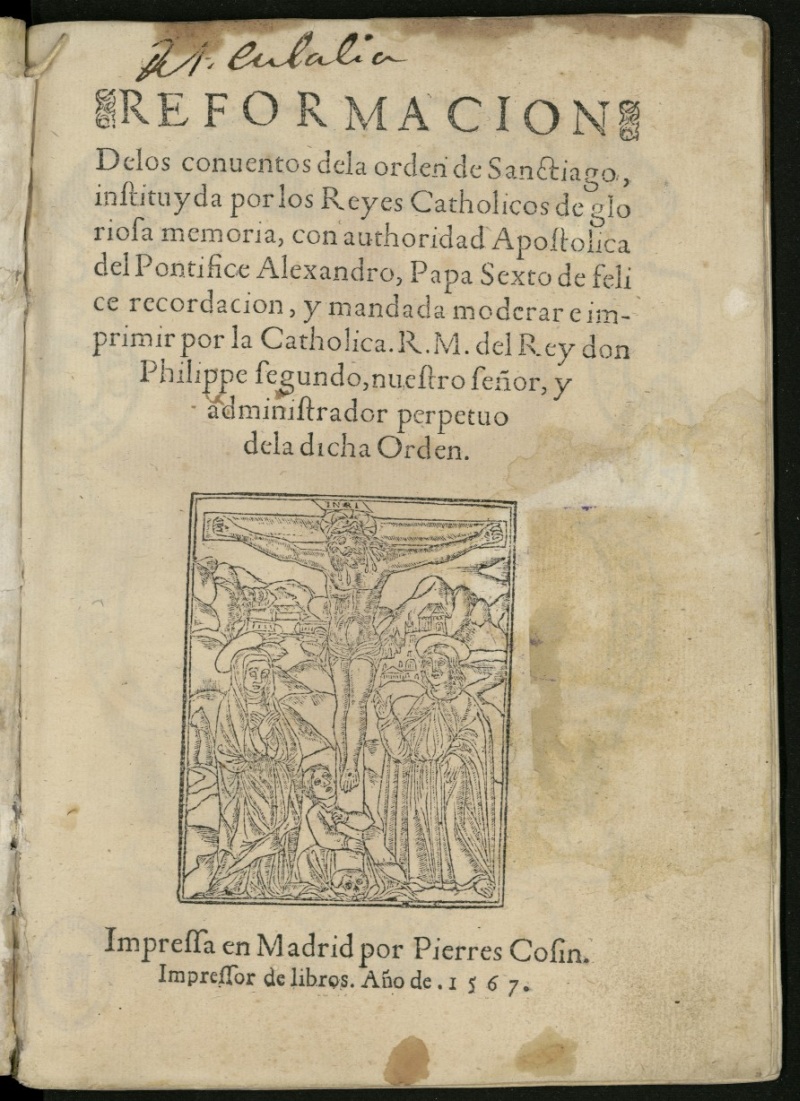 Sᵗ. Eulalia
REFORMACION
Delos conuentos dela orden de Sanctiago,
inſtituyda por los Reyes Catholicos de glo
rioſa memoria, con authoridad Apoſtolica
del Pontifice Alexandro, Papa Sexto de feli
ce recordacion, y mandada moderar e im-
primir por la Catholica. R. M. del Rey don
Philippe ſegundo, nueſtro ſeñor, y
adminiſtrador perpetuo
dela dicha Orden.
INRI
Impreſſa en Madrid por Pierres Coſin.
Impreſſor de libros. Año de. 1567.